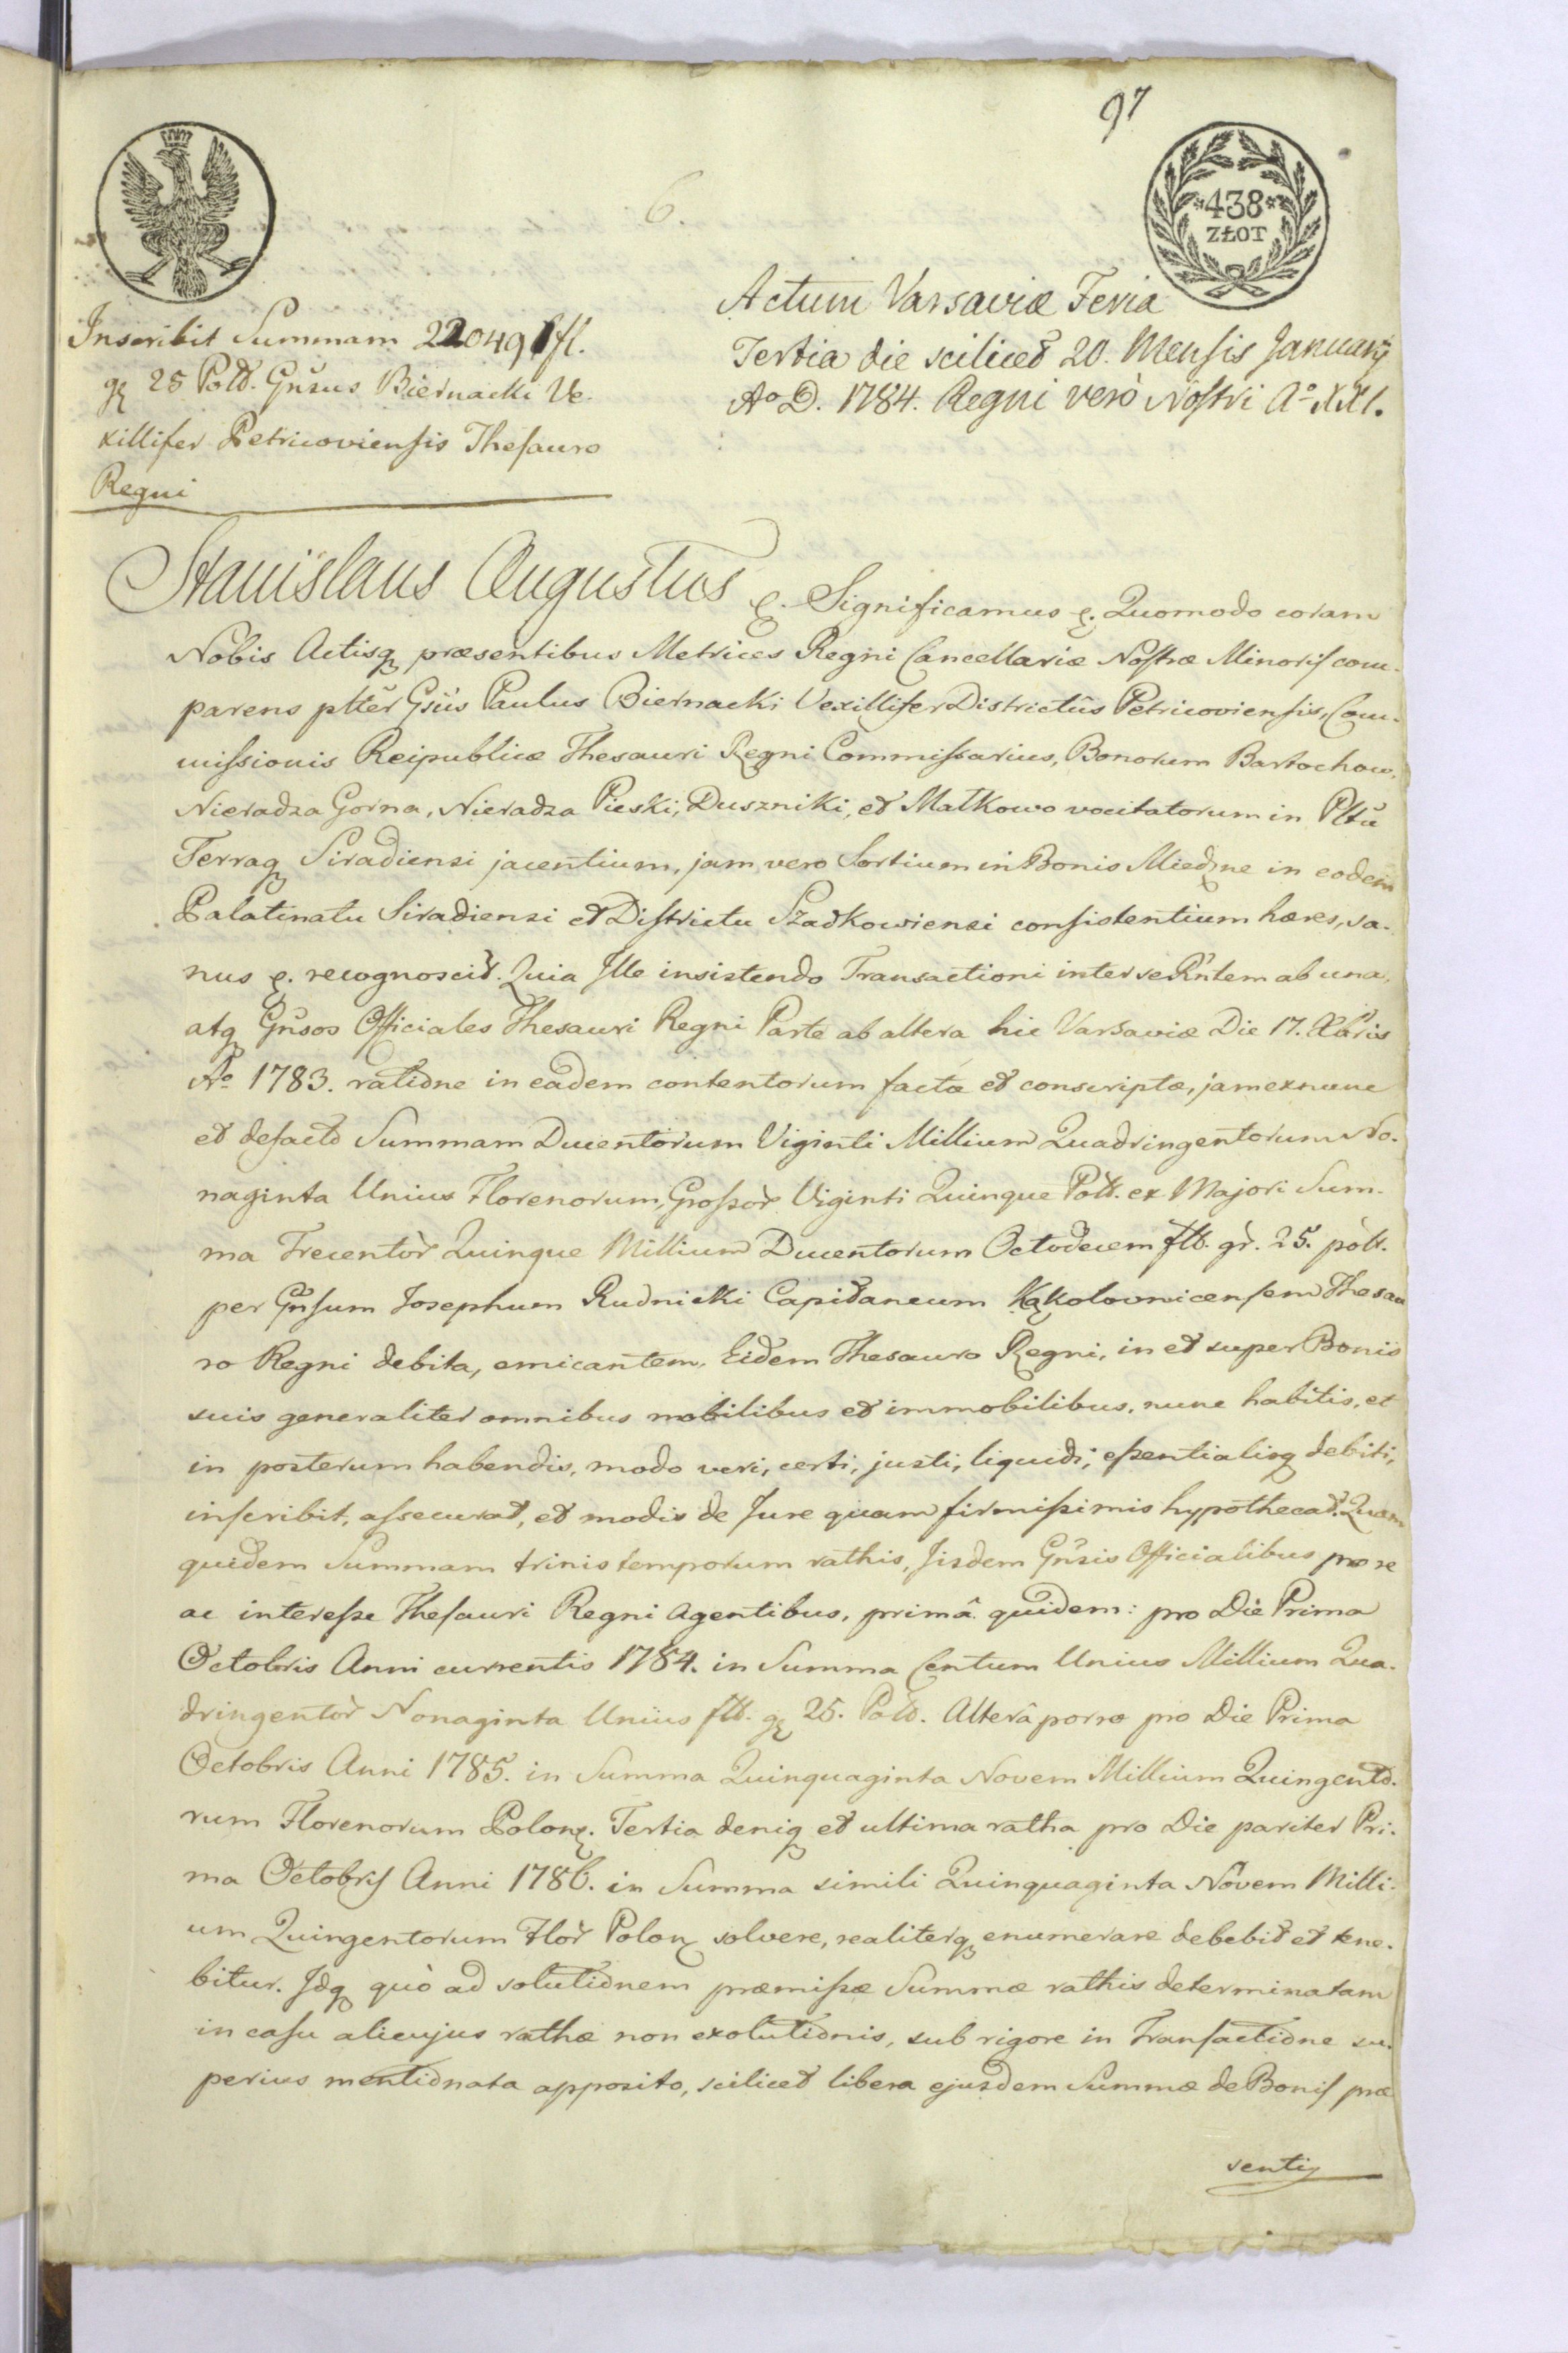 97
6.
*438*
ZŁOT
Inscribit Summam 220491 fl.
gr 25 Polł. Gnsus Biernacki Ve-
xillifer Petricoviensis Thesauro
Regni
Actum Varsaviæ Feria
Tertia die sciliced 20. Mensis January
Ao D. 1784. Regni verò Nostri Ao XXI.
Stanislaus Augustus &. Significamus &. Quomodo coram
Nobis Actisq præsentibus Metrices Regni Cancellariæ Nostræ Minoris com-
parens pltter Gsus Paulus Biernacki Vexillifer Districtûs Petricoviensis, Com-
missionis Reipublicæ Thesauri Regni Commissarius, Bonorum Bartochow,
Nieradza Gorna, Nieradza Pieski, Duszniki, et Małkowo vocitatorum in Pltu
Terraq Siradiensi jacentium, jam vero Sortium in Bonis Miedzne in eodem
Palatinatu Siradiensi et Districtu Szadkowiensi consistentium hæres, sa-
nus &. recognoscit. Quia Ille insistendo Transactioni inter se Rntem ab una,
atq Gnsos Officiales Thesauri Regni Parte ab altera hic Varsaviæ Die 17. Xbris
Ao 1783. ratione in eâdem contentorum factæ et conscriptæ, jam exnunc
et defacto Summam Ducentorum Viginti Millium Quadringentorum No-
naginta Unius Florenorum, Grossor Viginti Quinque Polł. ex Majori Sum-
ma Trecentor Quinque Millium Ducentorum Octodecem flł. gr. 25. polł.
per Gnsum Josephum Rudnicki Capitaneum Kąkolovnicensem Thesau
ro Regni debita, emicantem, Eidem Thesauro Regni, in et super Bonis
suis generaliter omnibus mobilibus et immobilibus, nunc habitis, et
in posterum habendis, modo veri, certi, justi, liquidi, essentialisq debiti,
inscribit, assecurat, et modis de Jure quam firmissimis hypothecat. Quam
quidem Summam trinis temporum rathis, Iisdem Gnsis Officialibus pro re
ac interesse Thesauri Regni Agentibus, primâ quidem: pro Die Prima
Octobris Anni currentis 1784. in Summa Centum Unius Millium Qua-
dringentor Nonaginta Unius flł. gr 25. Polł. Alterâ porro pro Die Prima
Octobris Anni 1785. in Summa Quinquaginta Novem Millium Quingento-
rum Florenorum Polon. Tertia deniq et ultima ratha pro Die pariter Pri-
ma Octobris Anni 1786. in Summa simili Quinquaginta Novem Milli-
um Quingentorum Flor Polon solvere, realiterq enumerare debebit et tene-
bitur. Idq quò ad solutionem præmissæ Summæ rathis determinatam
in casu alicujus rathæ non exolutionis, sub rigore in Transactione su-
perius mentionata apposito, scilicet libera ejusdem Summæ de Bonis præ
senti